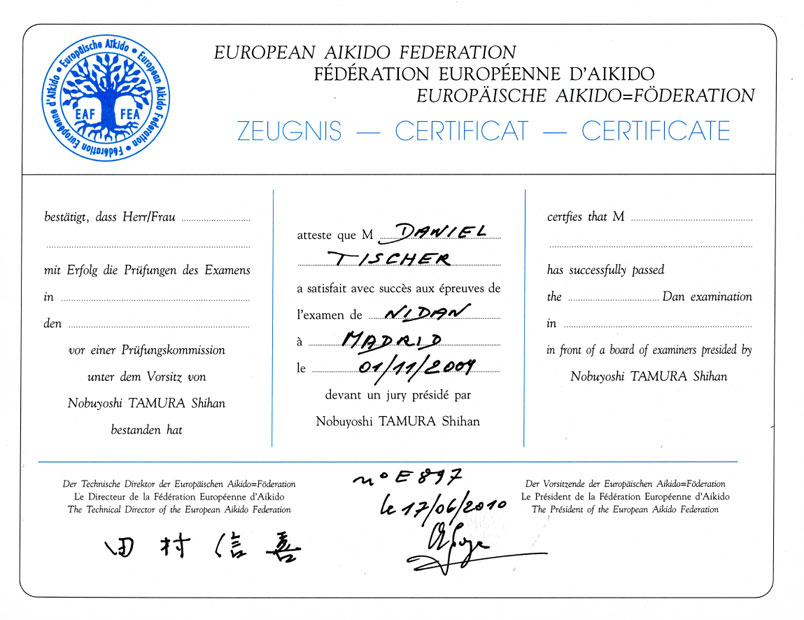 Europäische Aïkido • European Aikido Federation • Fédération Européenne d'Aïkido •
EAF FEA
EUROPEAN AIKIDO FEDERATION
FÉDÉRATION EUROPÉENNE D'AIKIDO
EUROPÄISCHE AIKIDO=FÖDERATION
ZEUGNIS — CERTIFICAT — CERTIFICATE
bestätigt, dass Herr/Frau
mit Erfolg die Prüfungen des Examens
in
den
vor einer Prüfungskommission
unter dem Vorsitz von
Nobuyoshi TAMURA Shihan
bestanden hat
atteste que M DANIEL
TISCHER
a satisfait avec succès aux épreuves de
l'examen de NIDAN
à MADRID
le 01/11/2009
devant un jury présidé par
Nobuyoshi TAMURA Shihan
certfies that M
has successfully passed
the Dan examination
in
in front of a board of examiners presided by
Nobuyoshi TAMURA Shihan
Der Technische Direktor der Europäischen Aikido=Föderation
Le Directeur de la Fédération Européenne d'Aikido
The Technical Director of the European Aikido Federation
田村信喜
n° E 897
le 17/06/2010
Der Vorsitzende der Europäischen Aikido=Föderation
Le Président de la Fédération Européenne d'Aikido
The Président of the European Aikido Federation